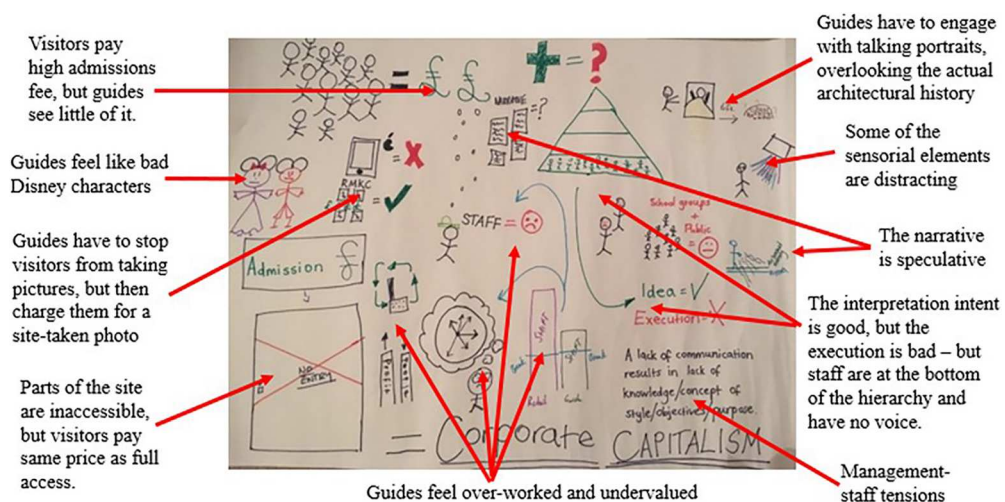 Visitors pay
high admissions
fee, but guides
see little of it.
Guides feel like bad
Disney characters
Guides have to stop
visitors from taking
pictures, but then
charge them for a
site-taken photo
Parts of the site
are inaccessible,
but visitors pay
same price as full
access.
= £ £
+ = ?
= ?
= X
RMKC
= ✓
STAFF =
Admission £
NO
ENTRY
School groups
+
Public
=
Idea = ✓
Execution = X
STAFF
A lack of communication
results in lack of
knowledge/concept of
style/objectives/purpose.
= Corporate CAPITALISM
Guides feel over-worked and undervalued
Guides have to engage
with talking portraits,
overlooking the actual
architectural history
Some of the
sensorial elements
are distracting
The narrative
is speculative
The interpretation intent
is good, but the
execution is bad – but
staff are at the bottom
of the hierarchy and
have no voice.
Management-
staff tensions